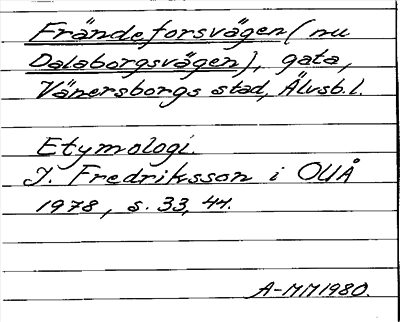 Frändeforsvägen (nu
Dalaborgsvägen), gata,
Vänersborgs stad, Älvsb.l.
Etymologi.
J. Fredriksson i OUÅ
1978, s. 33, 44.
A-MM1980.